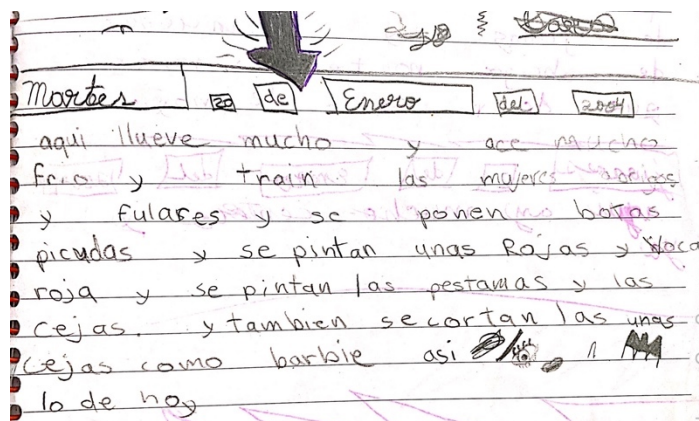 Martes 20 de Enero del 2004
aqui llueve mucho y ace mucho
frio y train las mujeres
y fulares y se ponen botas
picudas y se pintan unas Rojas y voca
roja y se pintan las pestamas y las
cejas. y tambien se cortan las unas
cejas como barbie asi
lo de hoy